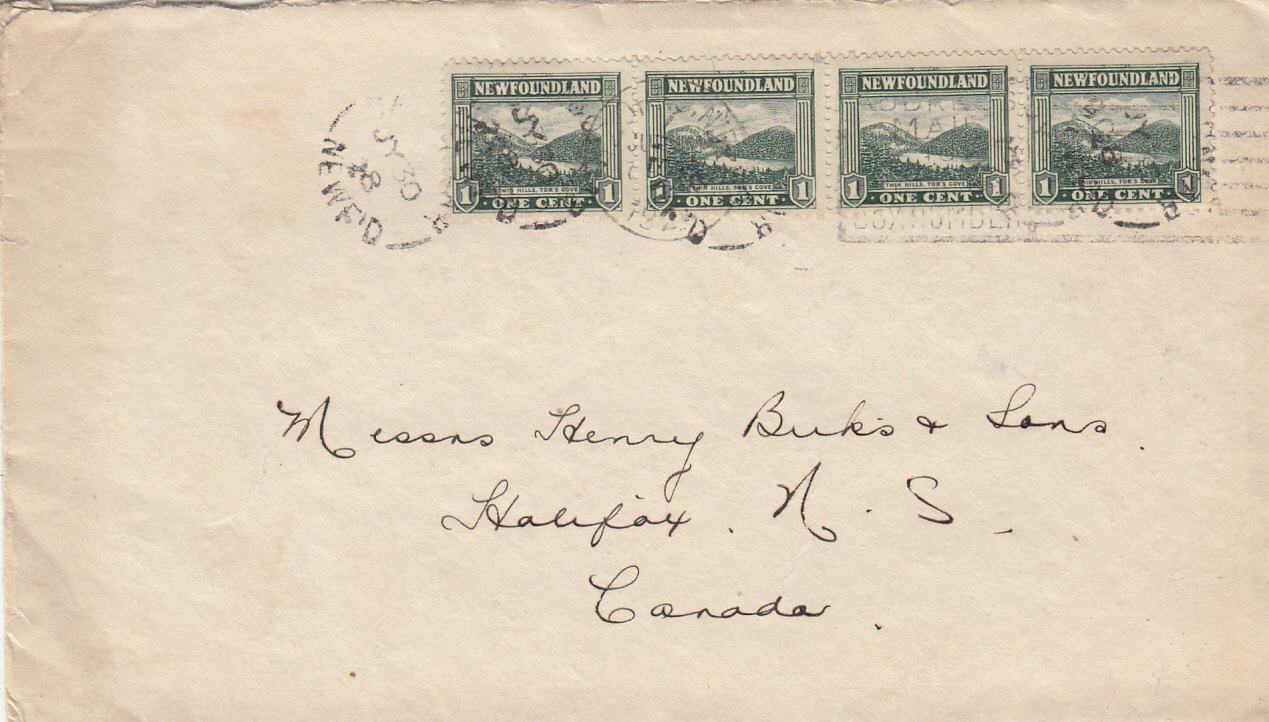 NEWFOUNDLAND NEWFOUNDLAND NEWFOUNDLAND NEWFOUNDLAND
TWIN HILLS, TOR'S COVE TWIN HILLS, TOR'S COVE TWIN HILLS, TOR'S COVE TWIN HILLS, TOR'S COVE
1 ONE CENT 1 1 ONE CENT 1 1 ONE CENT 1 1 ONE CENT 1
JY 30
28
NEWF'D
MAIL
BOX NUMBER
Messrs Henry Birks & Sons.
Halifax. N. S.
Canada.